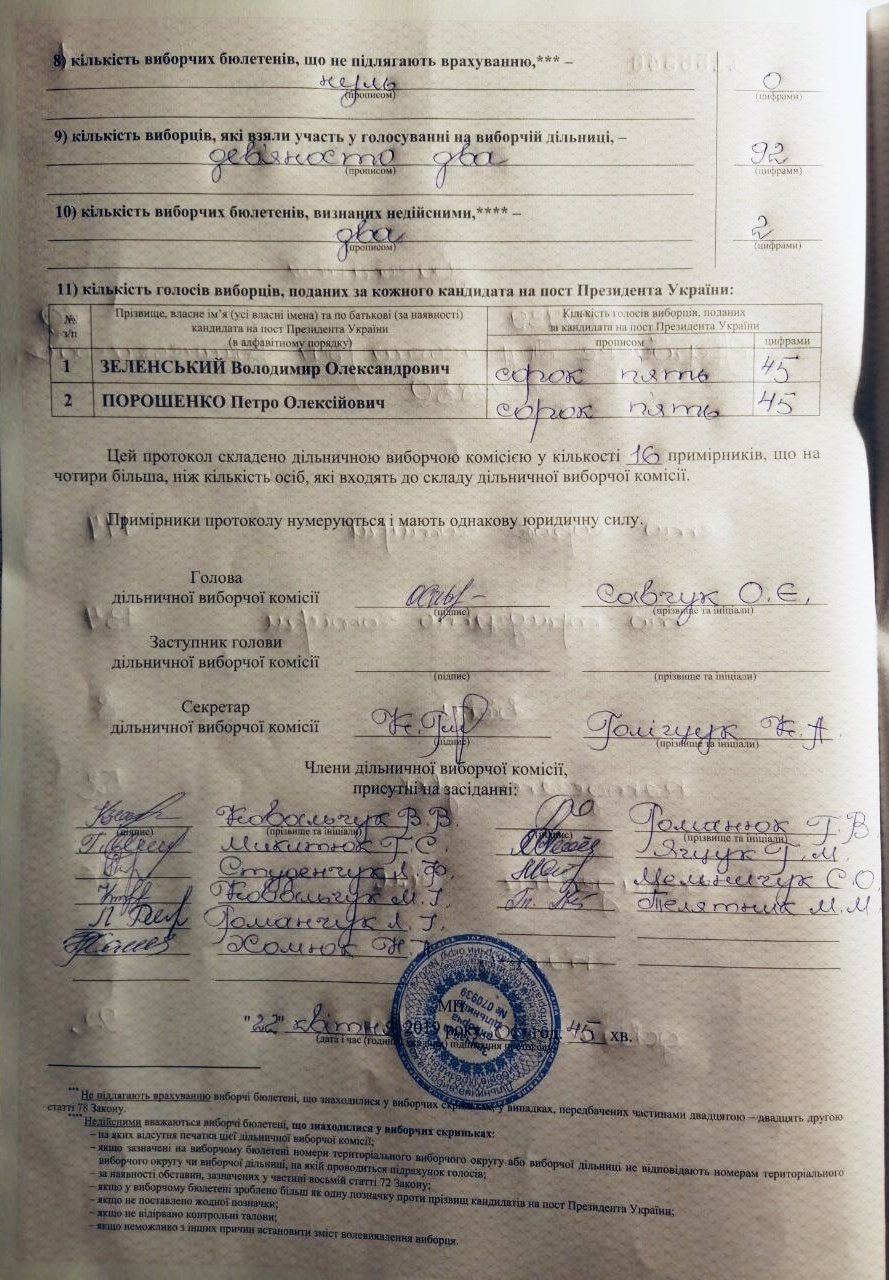 8) кількість виборчих бюлетенів, що не підлягають врахуванню,*** –
нуль 0
(прописом) (цифрами)
9) кількість виборців, які взяли участь у голосуванні на виборчій дільниці, –
дев'яносто два 92
(прописом) (цифрами)
10) кількість виборчих бюлетенів, визнаних недійсними,**** –
два 2
(прописом) (цифрами)
11) кількість голосів виборців, поданих за кожного кандидата на пост Президента України:
№ з/п Прізвище, власне ім’я (усі власні імена) та по батькові (за наявності) кандидата на пост Президента України (в алфавітному порядку) Кількість голосів виборців, поданих за кандидата на пост Президента України
прописом цифрами
1 ЗЕЛЕНСЬКИЙ Володимир Олександрович сорок п'ять 45
2 ПОРОШЕНКО Петро Олексійович сорок п'ять 45
Цей протокол складено дільничною виборчою комісією у кількості 16 примірників, що на
чотири більша, ніж кількість осіб, які входять до складу дільничної виборчої комісії.
Примірники протоколу нумеруються і мають однакову юридичну силу.
Голова
дільничної виборчої комісії Савчук О.Є.
(підпис) (прізвище та ініціали)
Заступник голови
дільничної виборчої комісії
(підпис) (прізвище та ініціали)
Секретар
дільничної виборчої комісії Поліщук К.А.
(підпис) (прізвище та ініціали)
Члени дільничної виборчої комісії,
присутні на засіданні:
Ковальчук В В. Романюк Г В
(підпис) (прізвище та ініціали) (підпис) (прізвище та ініціали)
Микитюк Г.С. Ящук Г.М.
Студенчук Л.Ф. Мельничук С.О
Ковальчук М.І. Телятник М.М
Романчук Л.І.
Хомюк Н.
МП
"22" квітня 2019 року, год. 45 хв.
(дата і час (година, хвилини) підписання протоколу)
№ 070939
*** Не підлягають врахуванню виборчі бюлетені, що знаходилися у виборчих скриньках, у випадках, передбачених частинами двадцятою – двадцять другою
статті 78 Закону.
**** Недійсними вважаються виборчі бюлетені, що знаходилися у виборчих скриньках:
– на яких відсутня печатка цієї дільничної виборчої комісії;
– якщо зазначені на виборчому бюлетені номери територіального виборчого округу або виборчої дільниці не відповідають номерам територіального
виборчого округу чи виборчої дільниці, на якій проводиться підрахунок голосів;
– за наявності обставин, зазначених у частині восьмій статті 72 Закону;
– якщо у виборчому бюлетені зроблено більш як одну позначку проти прізвищ кандидатів на пост Президента України;
– якщо не поставлено жодної позначки;
– якщо не відірвано контрольні талони;
– якщо неможливо з інших причин встановити зміст волевиявлення виборця.